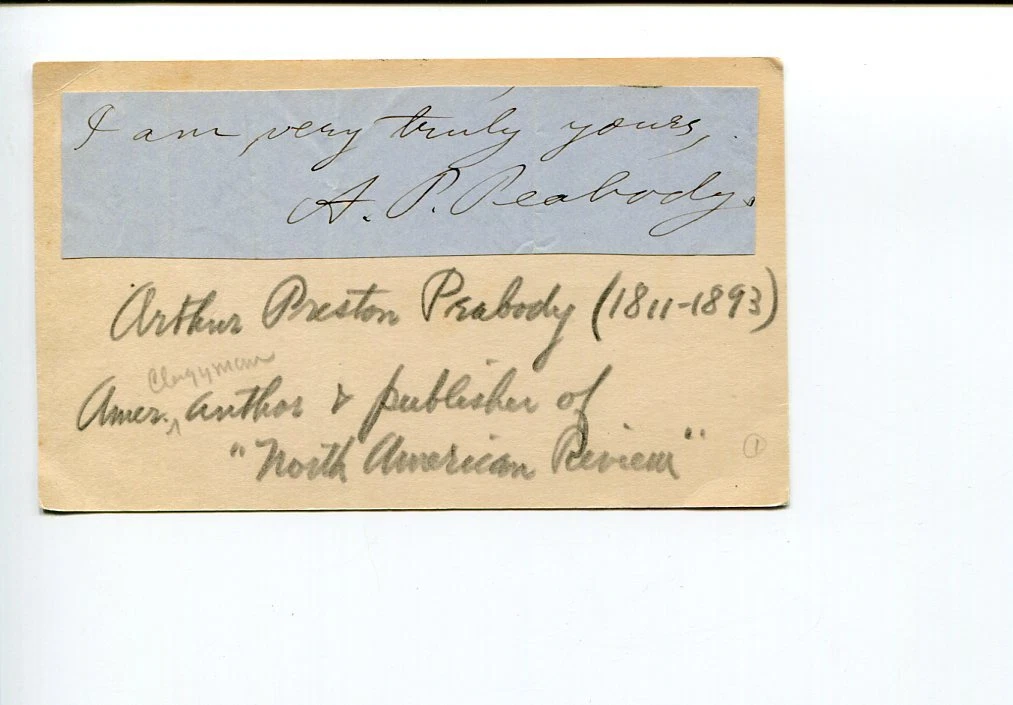 I am very truly yours,
A. P. Peabody.
Arthur Preston Peabody (1811-1893)
Clergyman
Amer. ^ author & publisher of
"North American Review"
1